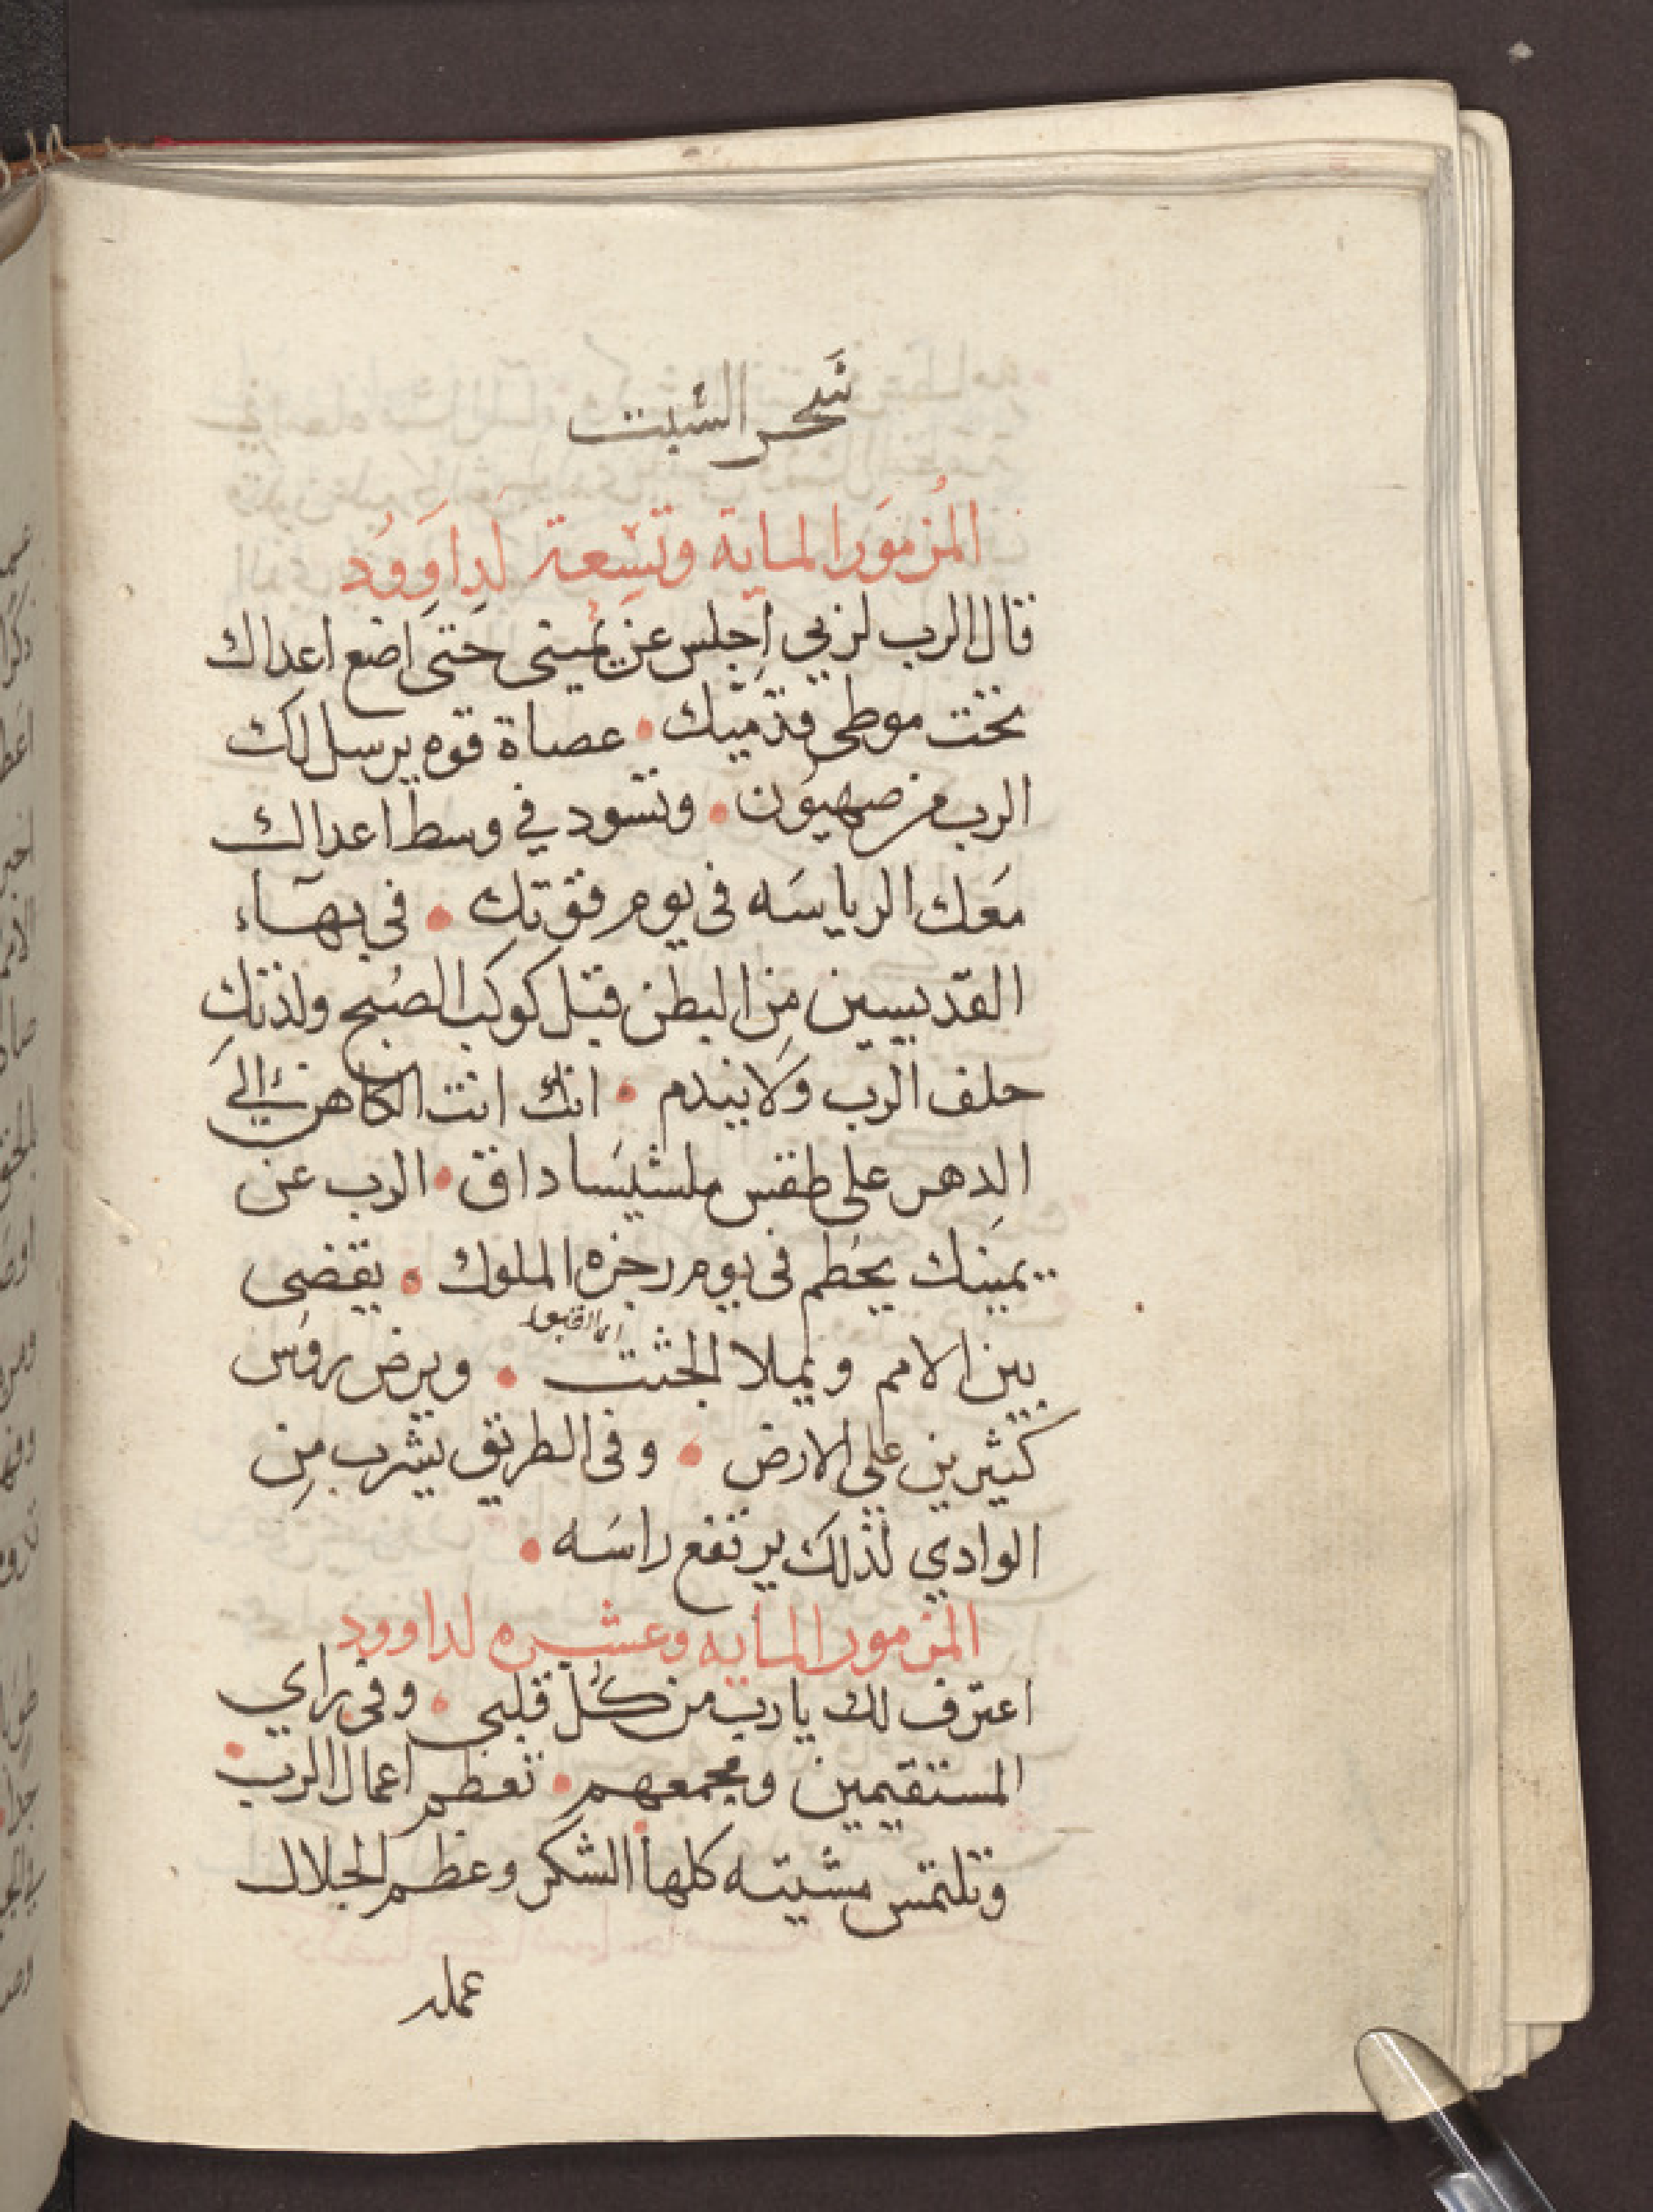 سَحر السَبت
المُزموَر المايه وتسِعة لَداوَوُد
قال الرب لربي اجِلس عَن يَميني حَتى اضع اعداك
تحت موطى قدميك • عصاة قوه يرسل لَك
الرب من صهيَون • وتسود في وسط اعداك
مَعَك الرياسَه فى يوم قوتك • فى بهآء
القدّيسين مِن البطن قبل كوكَب الصُبح ولدَتكِ
حلف الرب وَلا يندم • انك انت الكاهن الىَ
الدهر على طقس ملشيسَاداق • الرب عن
يمينِك يحُطم فى يوم رجزه الملوك • يقضى
اى القبور
بين الامم ويملا الجثث • ويرض روَس
كثيرين على الارض • وفى الطريق يشرب مِن
الوادي لذلكَ يرتفع راسَه •
المزمور المايه وعشره لداوود
اعترف لك يا رب من كُل قلبى • وفى راي
المستقيمين ومجمعهم • تعظم اعمال الرب •
وتلتمس مشيته كلها • الشكر وعظم الجلال
عمله